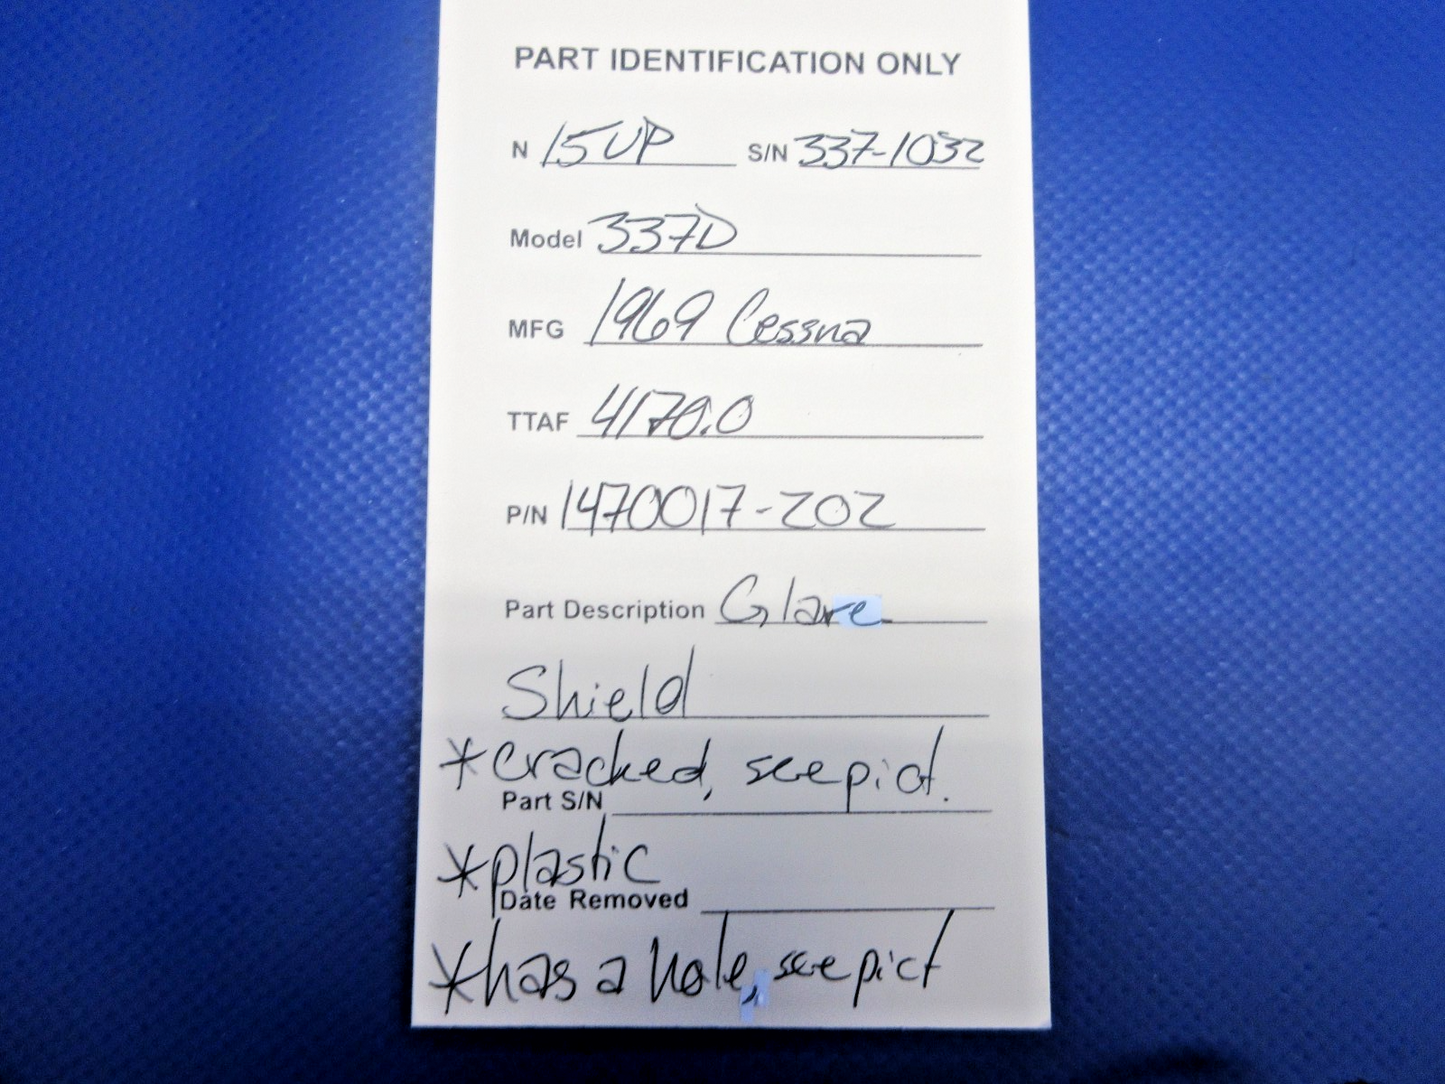 PART IDENTIFICATION ONLY
N 15UP S/N 337-1032
Model 337D
MFG 1969 Cessna
TTAF 4170.0
P/N 1470017-202
Part Description Glare
Shield
*cracked, see pict.
Part S/N
*plastic
Date Removed
*has a hole, see pict